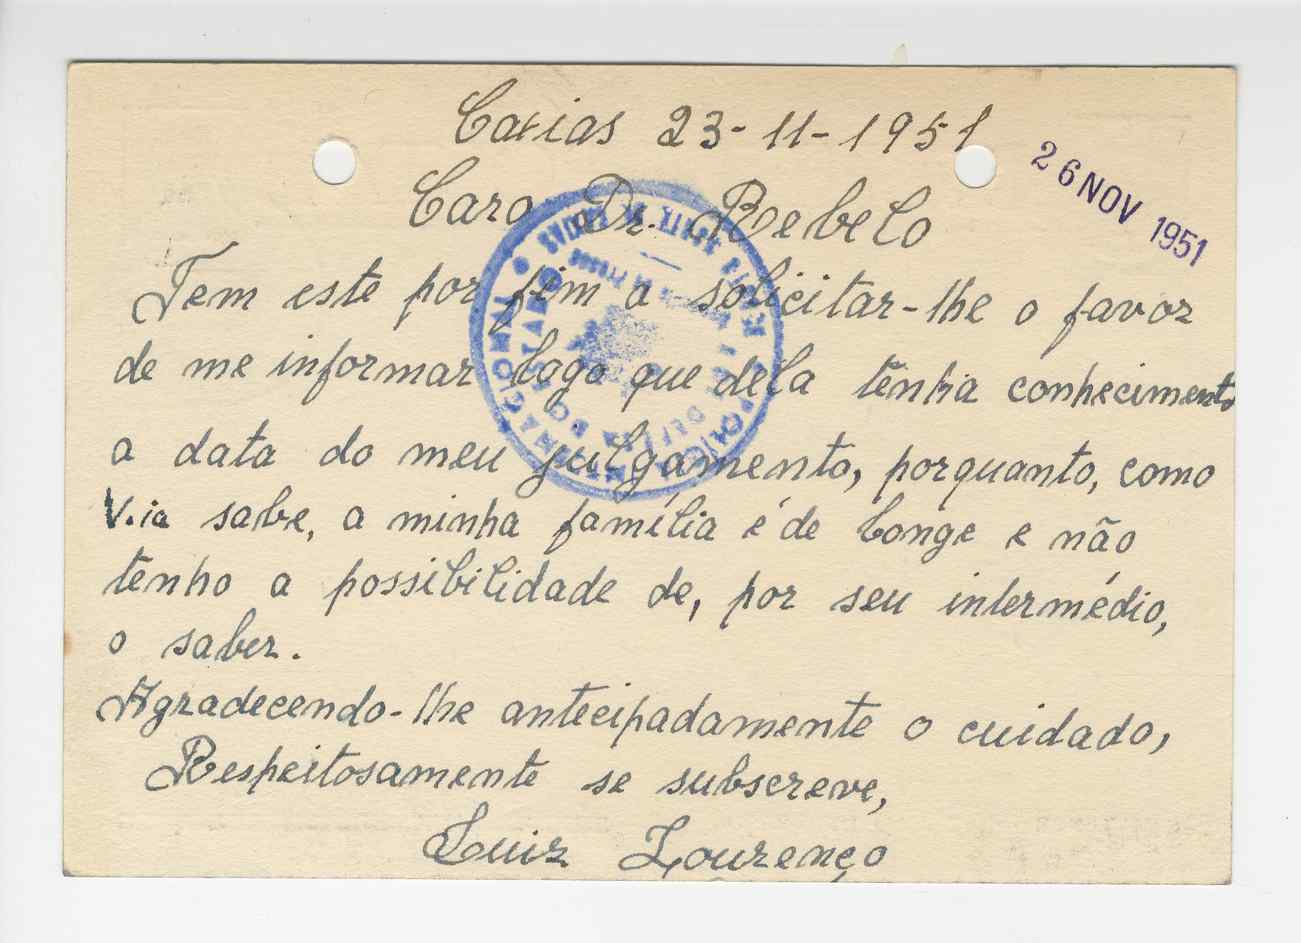 Caxias 23-11-1951
26 NOV 1951
Caro Dr. Roebelo
Tem este por fim a solicitar-lhe o favor
de me informar logo que dela tenha conhecimento
a data do meu julgamento, porquanto, como
V.ia sabe, a minha família é de longe e não
tenho a possibilidade de, por seu intermédio,
o saber.
Agradecendo-lhe antecipadamente o cuidado,
Respeitosamente se subscreve,
Luiz Lourenço
POLICIA INTERNACIONAL
DEFESA DO ESTADO